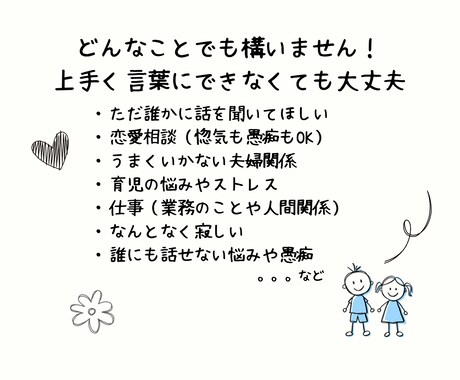 どんなことでも構いません!
上手く言葉にできなくても大丈夫
・ただ誰かに話を聞いてほしい
・恋愛相談(惚気も愚痴もOK)
・うまくいかない夫婦関係
・育児の悩みやストレス
・仕事(業務のことや人間関係)
・なんとなく寂しい
・誰にも話せない悩みや愚痴
。。。など